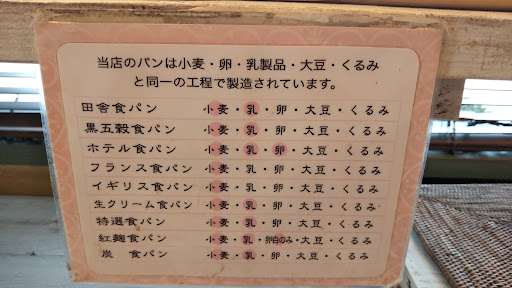 当店のパンは小麦・卵・乳製品・大豆・くるみ
と同一の工程で製造されています。
田舎食パン 小麦・乳・卵・大豆・くるみ
黒五穀食パン 小麦・乳・卵・大豆・くるみ
ホテル食パン 小麦・乳・卵・大豆・くるみ
フランス食パン 小麦・乳・卵・大豆・くるみ
イギリス食パン 小麦・乳・卵・大豆・くるみ
生クリーム食パン 小麦・乳・卵・大豆・くるみ
特選食パン 小麦・乳・卵・大豆・くるみ
紅麹食パン 小麦・乳・卵白のみ・大豆・くるみ
炭 食パン 小麦・乳・卵・大豆・くるみ